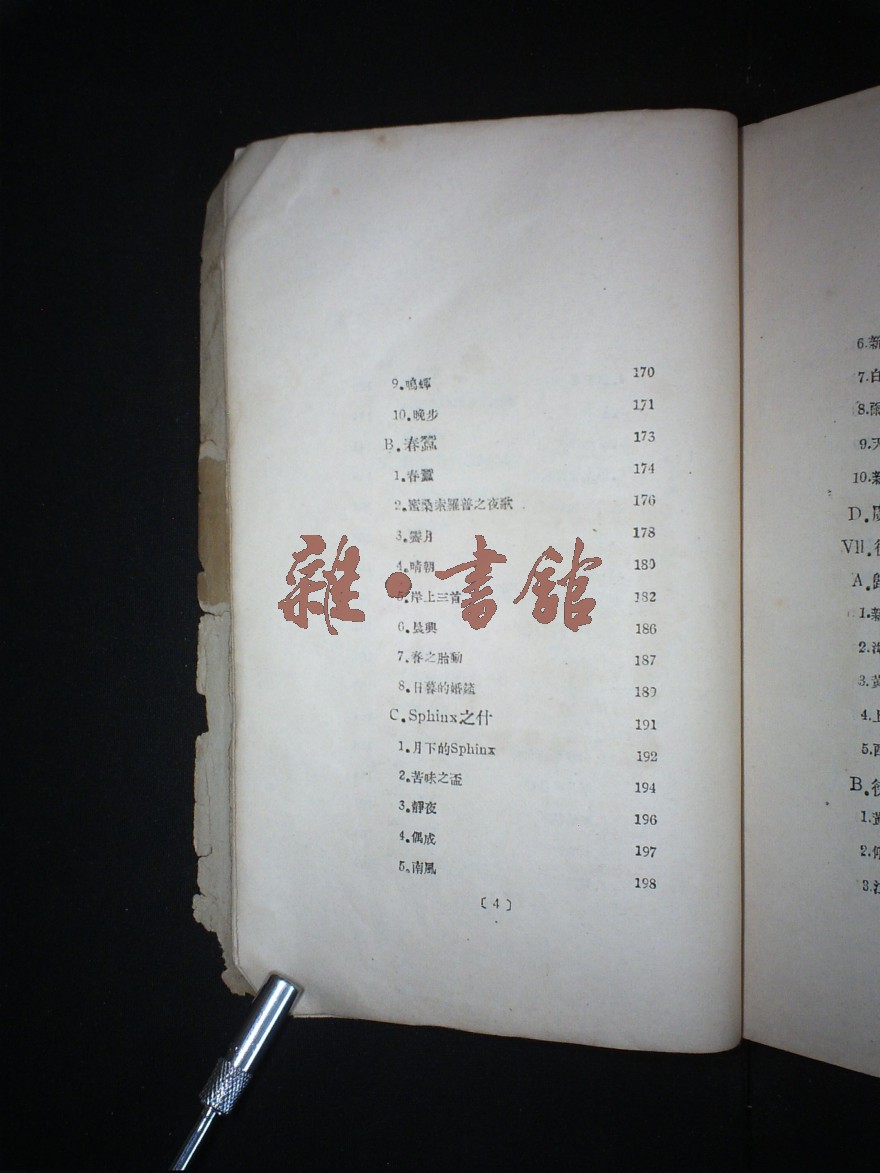 9.鳴蟬 170
10.晚步 171
B.春蠶 173
1.春蠶 174
2.蜜桑索羅普之夜歌 176
3.霽月 178
4.晴朝 180
5.岸上三首 182
6.晨興 186
7.春之胎動 187
8.日暮的婚筵 189
C.Sphinx之什 191
1.月下的Sphinx 192
2.苦味之盃 194
3.靜夜 196
4.偶成 197
5.南風 198
〔4〕
雜·書館
6.新
7.白
8.雨
9.天
10.新
D.
VII.
A.
1.新
2.
3.黃
4.上
5.西
B.
1.
2.
3.江